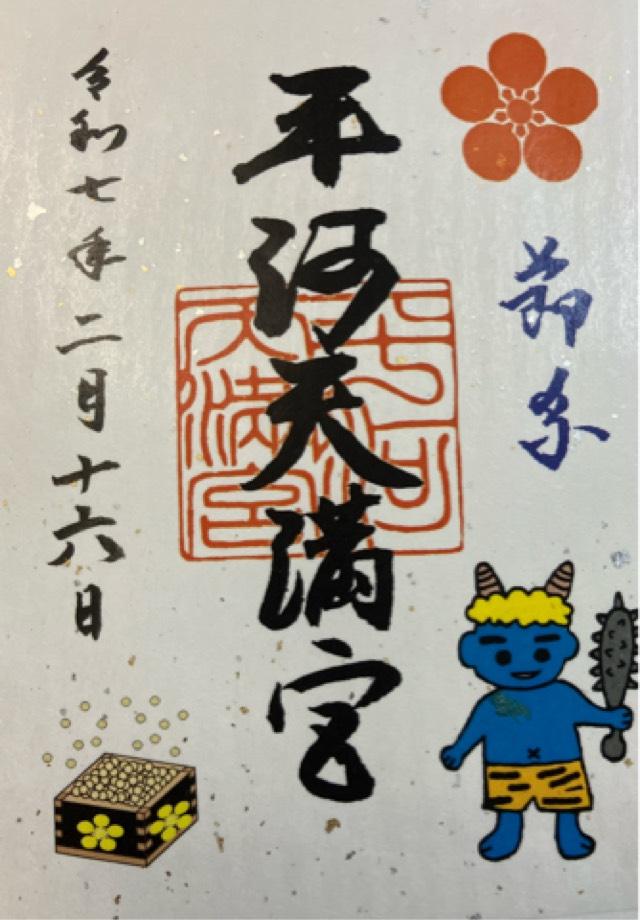 節祭
平河天満宮
平河
天満宮
令和七年二月十六日